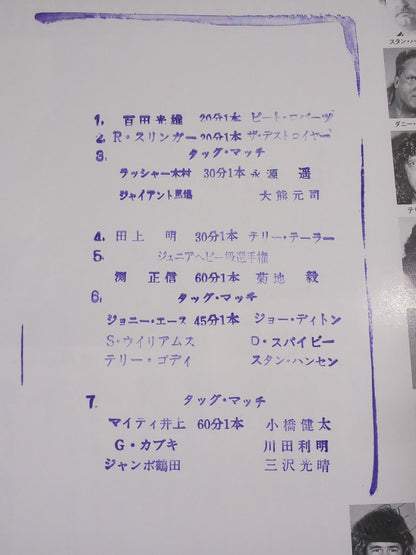 1. 百田光雄 20分1本 ピート・ロバーツ
2. R・スリンガー 20分1本 ザ・デストロイヤー
3. タッグ・マッチ
ラッシャー木村 30分1本 永源 遥
ジャイアント馬場 大熊元司
4. 田上 明 30分1本 テリー・テーラー
5 ジュニアヘビー級選手権
渕 正信 60分1本 菊地 毅
6. タッグ・マッチ
ジョニー・エース 45分1本 ジョー・ディトン
S・ウイリアムス D・スパイビー
テリー・ゴディ スタン・ハンセン
7. タッグ・マッチ
マイティ井上 60分1本 小橋健太
G・カブキ 川田利明
ジャンボ鶴田 三沢光晴
スタン・ハ
ダニー・
テリ